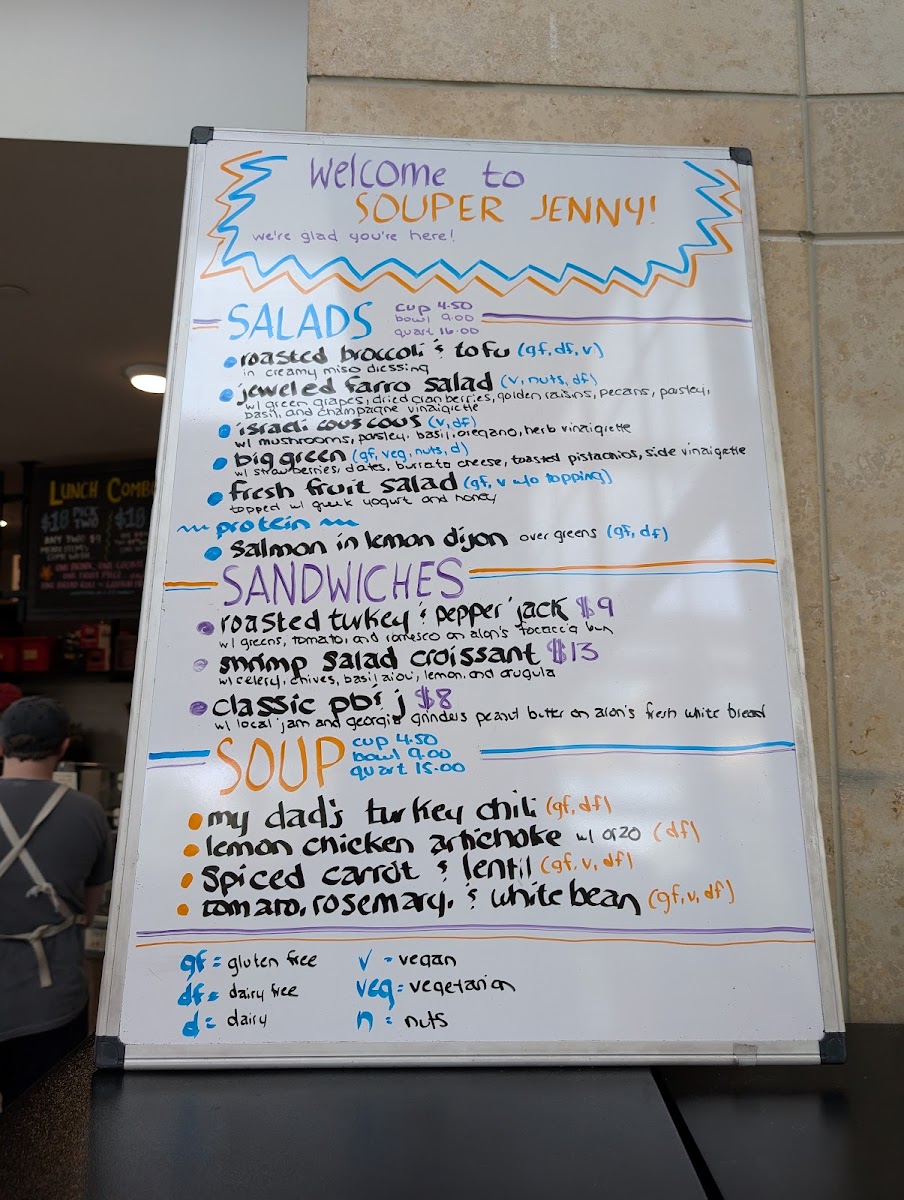 Welcome to
SOUPER JENNY!
we're glad you're here!
SALADS
cup 4.50
bowl 9.00
quart 16.00
roasted broccoli & tofu (gf, df, v)
in creamy miso dressing
jeweled farro salad (v, nuts, df)
w/ green grapes, dried cranberries, golden raisins, pecans, parsley,
basil, and champagne vinaigrette
israeli cous cous (v, df)
w/ mushrooms, parsley, basil, oregano, herb vinaigrette
big green (gf, veg, nuts, d)
w/ strawberries, dates, burrata cheese, toasted pistachios, side vinaigrette
fresh fruit salad (gf, v w/o topping)
topped w/ greek yogurt and honey
~ protein ~
salmon in lemon dijon over greens (gf, df)
SANDWICHES
roasted turkey & pepper jack $9
w/ greens, tomato, and romesco on alon's focaccia bun
shrimp salad croissant $13
w/ celery, chives, basil aioli, lemon, and arugula
classic pb & j $8
w/ local jam and georgia grinders peanut butter on alon's fresh white bread
SOUP
cup 4.50
bowl 9.00
quart 15.00
my dad's turkey chili (gf, df)
lemon chicken artichoke w/ orzo (df)
spiced carrot & lentil (gf, v, df)
tomato, rosemary, & white bean (gf, v, df)
gf = gluten free v = vegan
df = dairy free veg = vegetarian
d = dairy n = nuts
LUNCH COMB
$18 PICK TWO
ANY TWO $9
MENU ITEMS